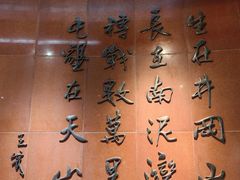 生在井岡山
長在南泥灣
轉戰數萬里
屯墾在天山
王震